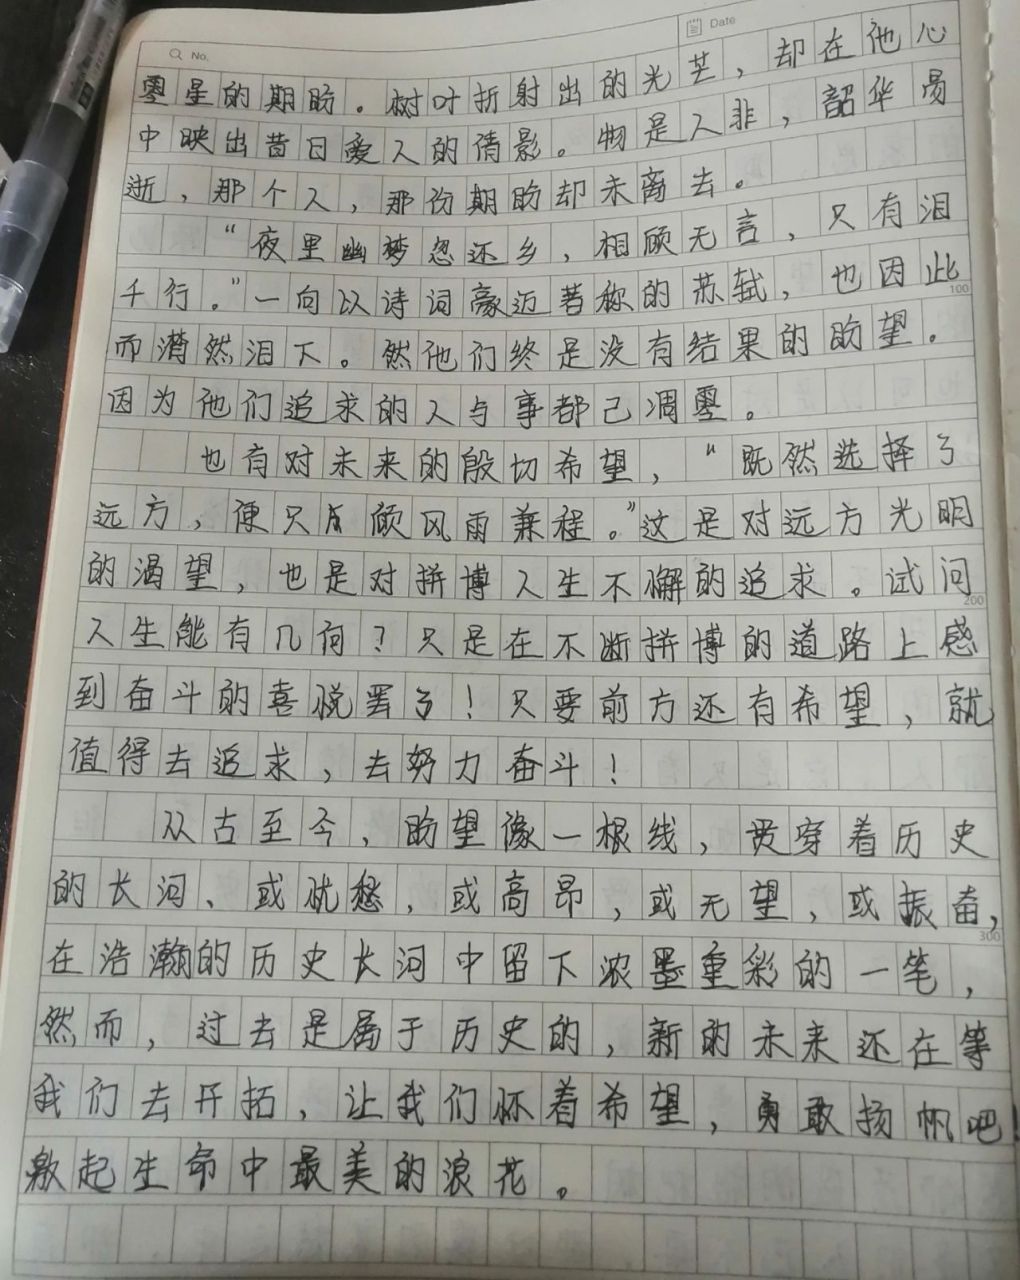 No.
Date
零星的期盼。树叶折射出的光芒，却在他心
中映出昔日爱人的倩影。物是人非，韶华易
逝，那个人，那份期盼却未离去。
“夜里幽梦忽还乡，相顾无言，只有泪
千行。”一向以诗词豪迈著称的苏轼，也因此
100
而潸然泪下。然他们终是没有结果的盼望。
因为他们追求的人与事都已凋零。
也有对未来的殷切希望，“既然选择了
远方，便只顾风雨兼程。”这是对远方光明
的渴望，也是对拼博人生不懈的追求。试问
200
人生能有几何？只是在不断拼博的道路上感
到奋斗的喜悦罢了！只要前方还有希望，就
值得去追求，去努力奋斗！
从古至今，盼望像一根线，贯穿着历史
的长河、或忧愁，或高昂，或无望，或振奋，
300
在浩瀚的历史长河中留下浓墨重彩的一笔，
然而，过去是属于历史的，新的未来还在等
我们去开拓，让我们怀着希望，勇敢扬帆吧！
激起生命中最美的浪花。